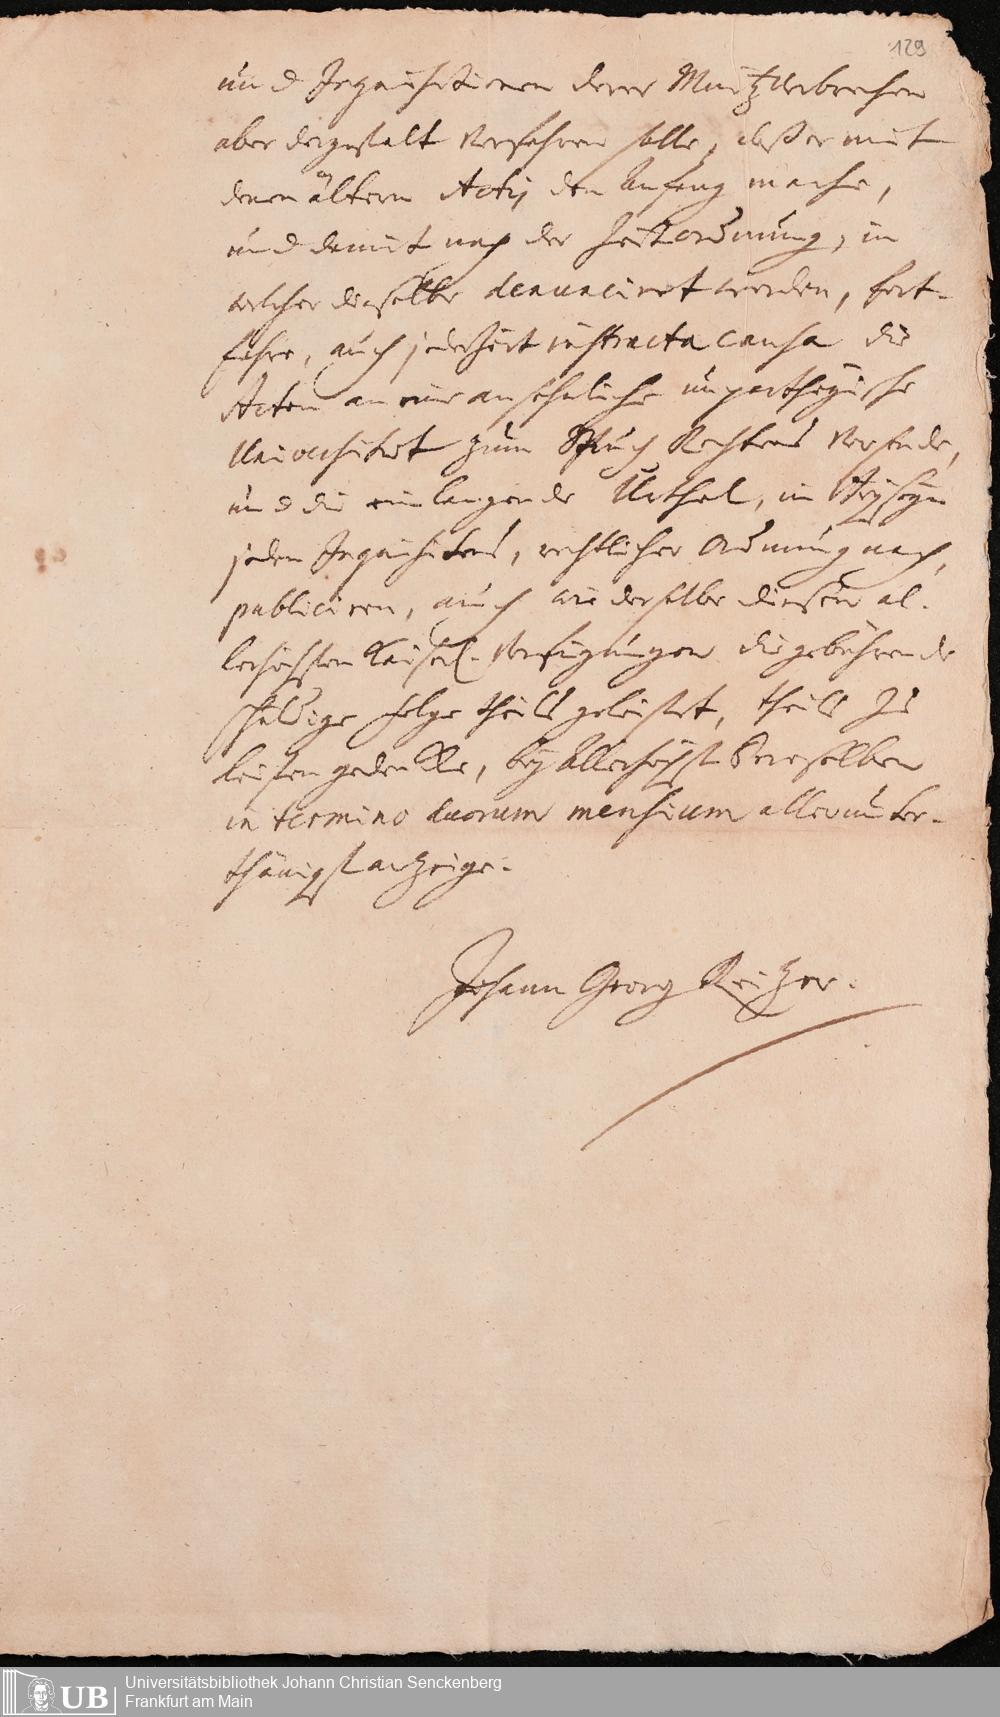 129
und Inquisitionen derer Müntzverbrechen
aber dergestalt verfahren solle, daß er mit
denen ältern Actis den Anfang mache,
und damit nach der Zeitordnung, in
welcher dieselbe denunciret worden, fort-
fahre, auch jederzeit instructa causa die
Acten an eine ansehnliche unpartheyische
Universitaet zum Spruch Rechtens versende,
und die einlangende Urthel, in Beyseyn
jeden Inquisitens, rechtlicher Ordnung nach,
publiciren, auch wie derselbe diesen al-
lerhöchsten Kaiserl. Verfügungen die gebührende
schuldige Folge theils geleistet, theils zu
leisten gedencke, bey Allerhöchst Deroselben
in termino duorum mensium allerunter-
thänigst anzeige.
Johann Georg Reitzer.
UB
Universitätsbibliothek Johann Christian Senckenberg
Frankfurt am Main